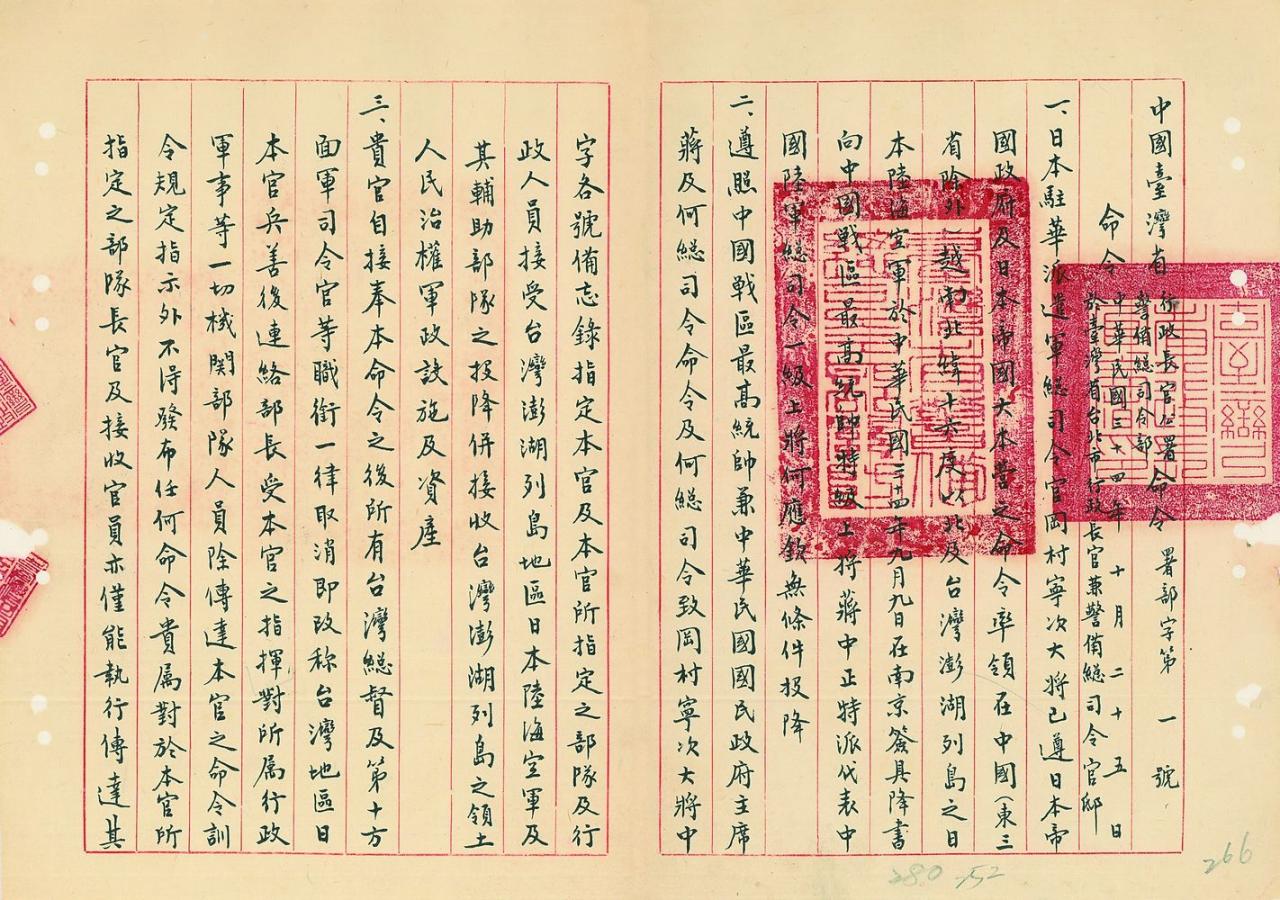 中國臺灣省行政長官公署命令 署部字第 一 號
警備總司令部
命令 中華民國三十四年 十月 二十五日
於臺灣省台北市行政長官兼警備總司令官邸
一、日本駐華派遣軍総司令官岡村寧次大將已遵日本帝
國政府及日本帝國大本营之命令率領在中國(東三
省除外)越南北緯十六度以北及台灣澎湖列島之日
本陸海空軍於中華民國三十四年九月九日在南京簽具降書
向中國戰區最高統帥特級上將蔣中正特派代表中
國陸軍総司令一級上將何應欽無條件投降
二、遵照中國戰區最高統帥兼中華民國國民政府主席
蔣及何総司令命令及何総司令致岡村寧次大將中
字各號備忘錄指定本官及本官所指定之部隊及行
政人員接受台灣澎湖列島地區日本陸海空軍及
其輔助部隊之投降併接收台灣澎湖列島之領土
人民治權軍政設施及資產
三、貴官自接奉本命令之後所有台灣総督及第十方
面軍司令官等職銜一律取消即改称台灣地區日
本官兵善後連絡部長受本官之指揮對所属行政
軍事等一切機関部隊人員除傳達本官之命令訓
令規定指示外不得發布任何命令貴属對於本官所
指定之部隊長官及接收官員亦僅能執行傳達其
280-52
266